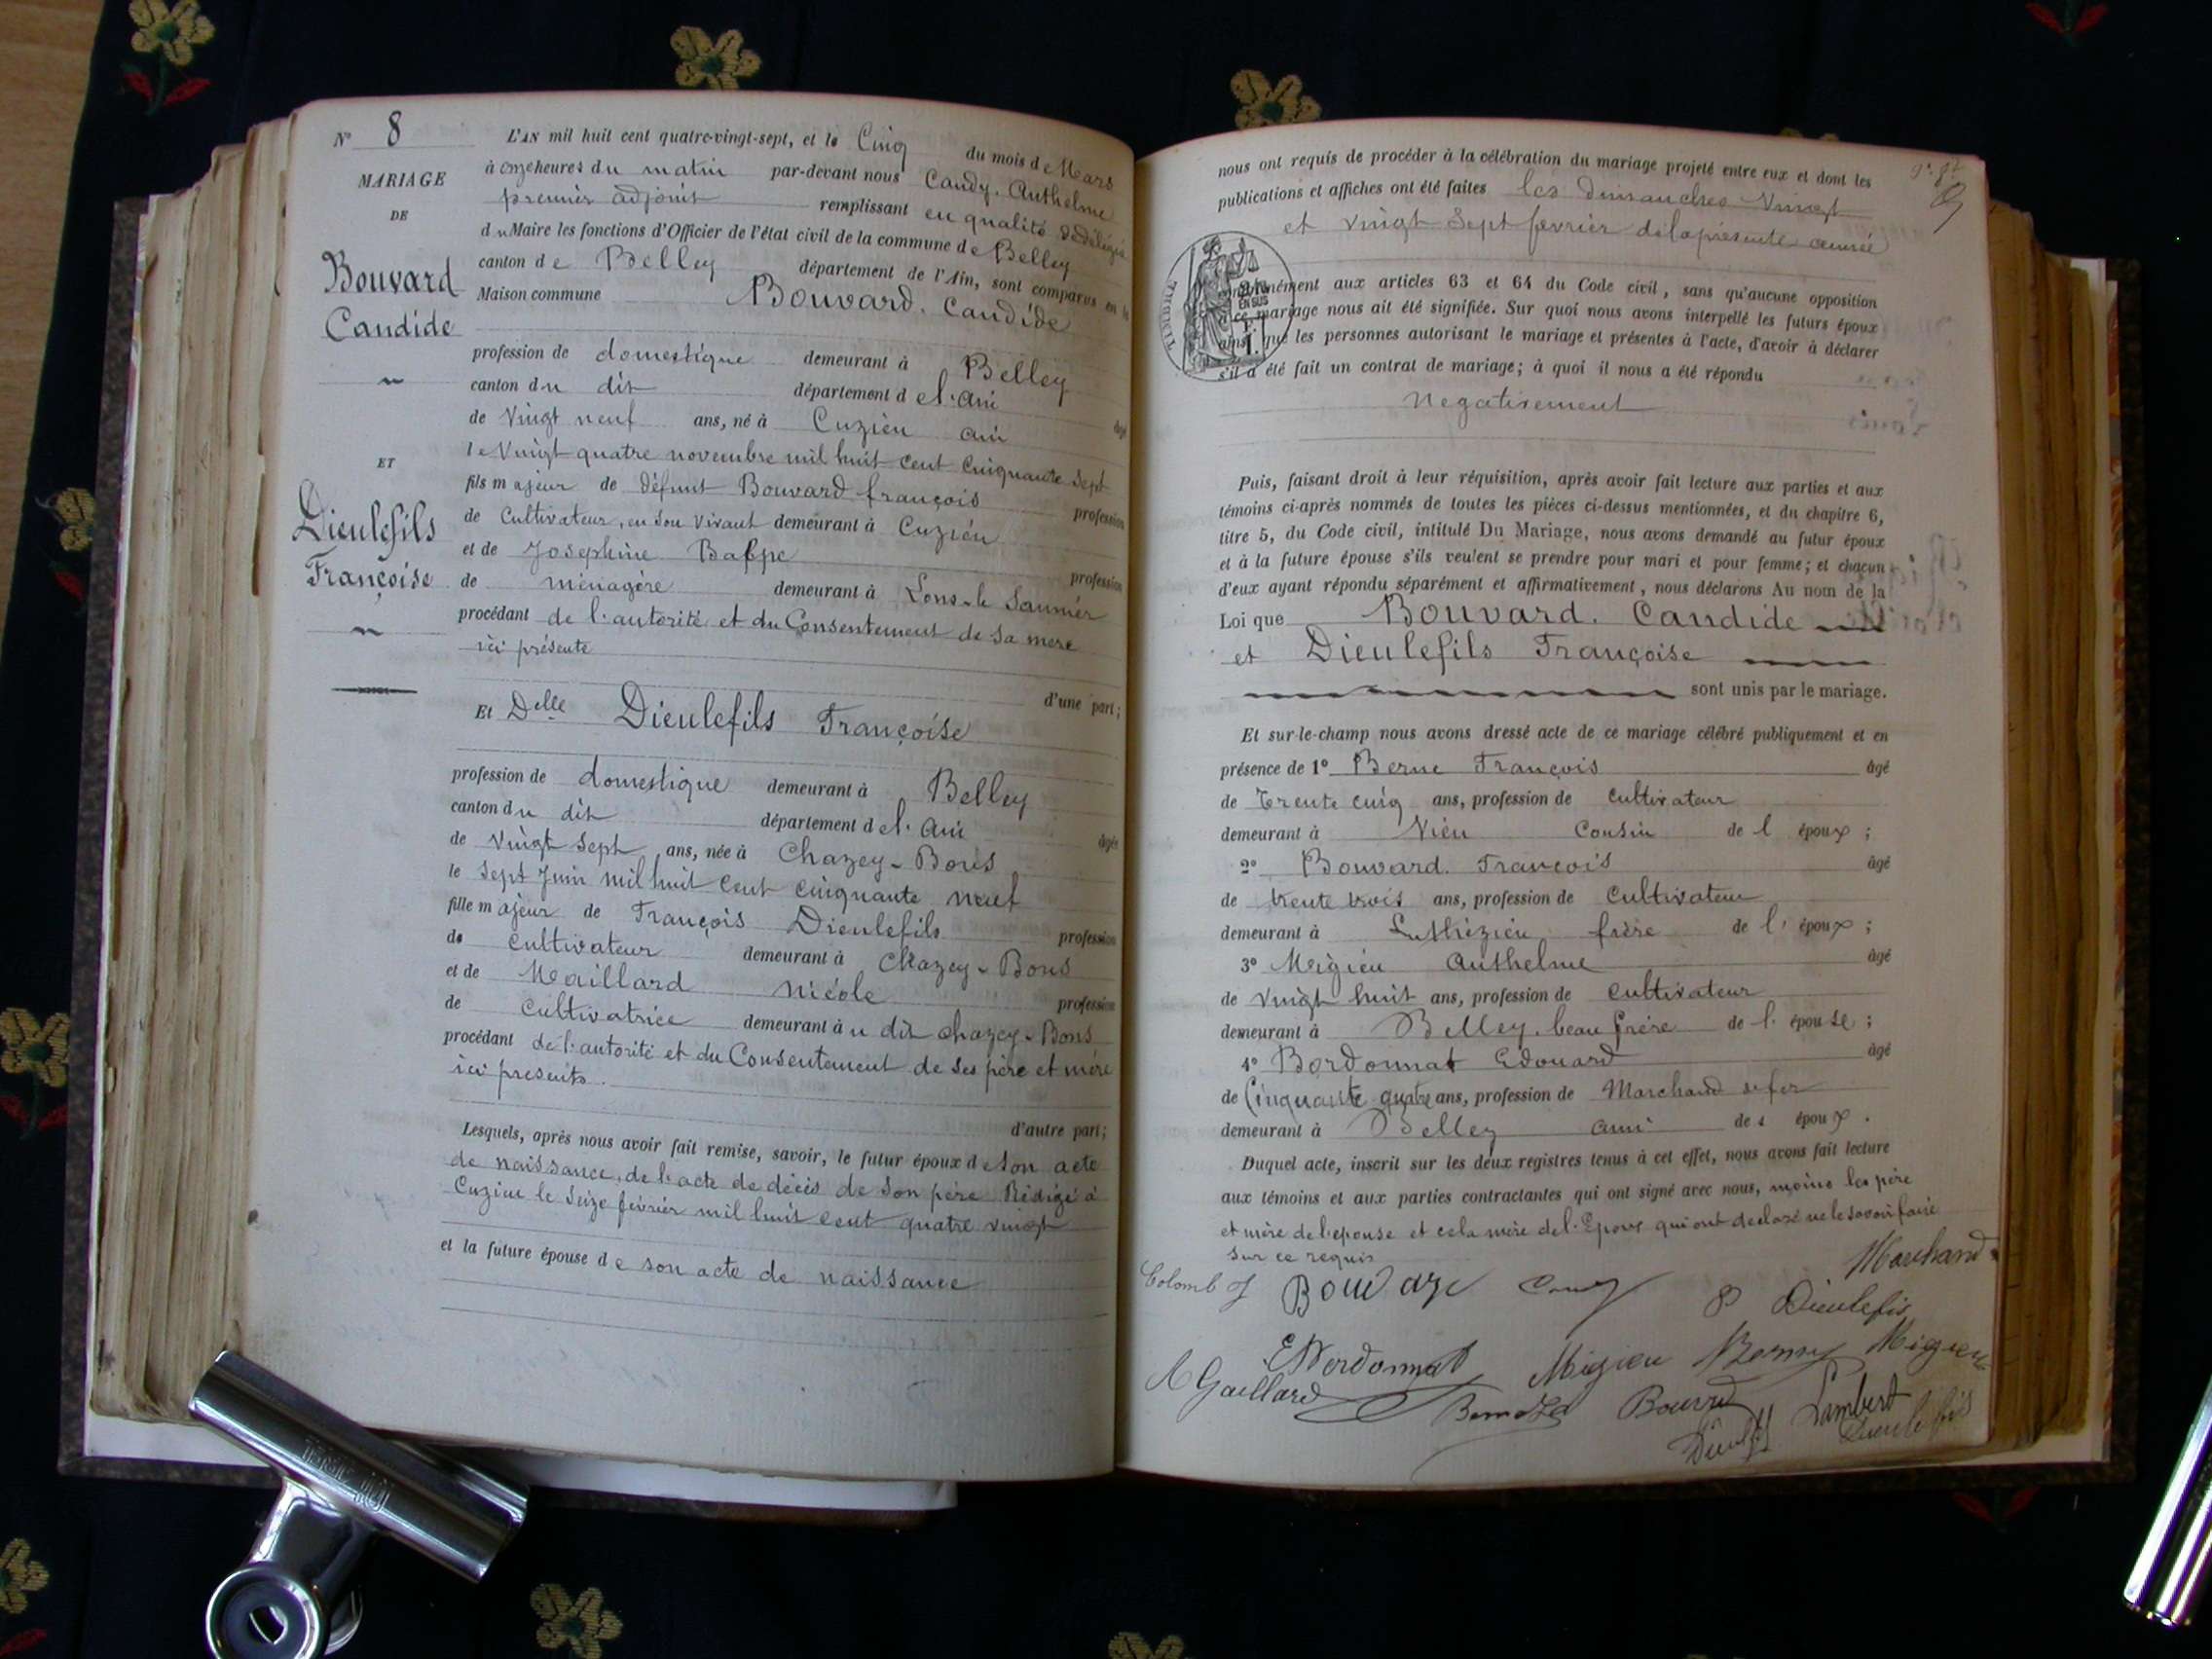 N° 8
MARIAGE
DE
Bouvard
Candide
ET
Dieulefils
Françoise
L'AN mil huit cent quatre-vingt-sept, et le Cinq du mois de Mars
à onze heures du matin par-devant nous Candy. Anthelme
premier adjoint remplissant en qualité de délégué
du Maire les fonctions d'Officier de l'état civil de la commune de Belley
canton de Belley département de l'Ain, sont comparus en la
Maison commune Bouvard. Candide
profession de domestique demeurant à Belley
canton du dit département de l'Ain âgé
de Vingt neuf ans, né à Cuzieu Ain
le Vingt quatre novembre mil huit cent Cinquante Sept
fils majeur de défunt Bouvard françois profession
de Cultivateur, en son vivant demeurant à Cuzieu
et de Joséphine profession
de ménagère demeurant à Lons-le Saunier
procédant de l'autorité et du Consentement de sa mère
ici présente
d'une part;
Et Delle Dieulefils Françoise
profession de domestique demeurant à Belley
canton du dit département de l'Ain âgée
de Vingt Sept ans, née à Chazey-Bons
le Sept Juin mil huit Cent Cinquante neuf
fille majeur de François Dieulefils profession
de Cultivateur demeurant à Chazey-Bons
et de Maillard Nicole profession
de Cultivatrice demeurant àu dit Chazey-Bons
procédant de l'autorité et du Consentement de ses père et mère
ici presents.
d'autre part;
Lesquels, après nous avoir fait remise, savoir, le futur époux de son acte
de naissance, de l'acte de décès de son père Rédigé à
Cuzieu le Seize février mil huit cent quatre vingt
et la future épouse de son acte de naissance
nous ont requis de procéder à la célébration du mariage projeté entre eux et dont les
publications et affiches ont été faites les Dimanches Vingt
et Vingt Sept février de la présente année
conformément aux articles 63 et 64 du Code civil, sans qu'aucune opposition
à ce mariage nous ait été signifiée. Sur quoi nous avons interpellé les futurs époux
ainsi que les personnes autorisant le mariage et présentes à l'acte, d'avoir à déclarer
s'il a été fait un contrat de mariage; à quoi il nous a été répondu
Negativement
TIMBRE
EN SUS
Puis, faisant droit à leur réquisition, après avoir fait lecture aux parties et aux
témoins ci-après nommés de toutes les pièces ci-dessus mentionnées, et du chapitre 6,
titre 5, du Code civil, intitulé Du Mariage, nous avons demandé au futur époux
et à la future épouse s'ils veulent se prendre pour mari et pour femme; et chacun
d'eux ayant répondu séparément et affirmativement, nous déclarons Au nom de la
Loi que Bouvard. Candide
et Dieulefils Françoise
sont unis par le mariage.
Et sur-le-champ nous avons dressé acte de ce mariage célébré publiquement et en
présence de 1° Berne François âgé
de Trente cinq ans, profession de Cultivateur
demeurant à Vieu Cousin de l époux;
2° Bouvard. François âgé
de trente trois ans, profession de Cultivateur
demeurant à Luthézieu frère de l'époux;
3° Migieu Anthelme âgé
de Vingt huit ans, profession de Cultivateur
demeurant à Belley. beau frère de l'épouse;
4° Bordonnat Edouard âgé
de Cinquante quatre ans, profession de Marchand de fer
demeurant à Belley ami de l époux.
Duquel acte, inscrit sur les deux registres tenus à cet effet, nous avons fait lecture
aux témoins et aux parties contractantes qui ont signé avec nous, moins les père
et mère de l'épouse et cela mère de l'Epoux qui ont declaré ne le savoir faire
Sur ce requis
Marchand
Colomb J Bouvard Candy P Dieulefis
E Bordonnat Migieu Berne Migieu
A Gaillard Bouvard Lambert
Dieulefis